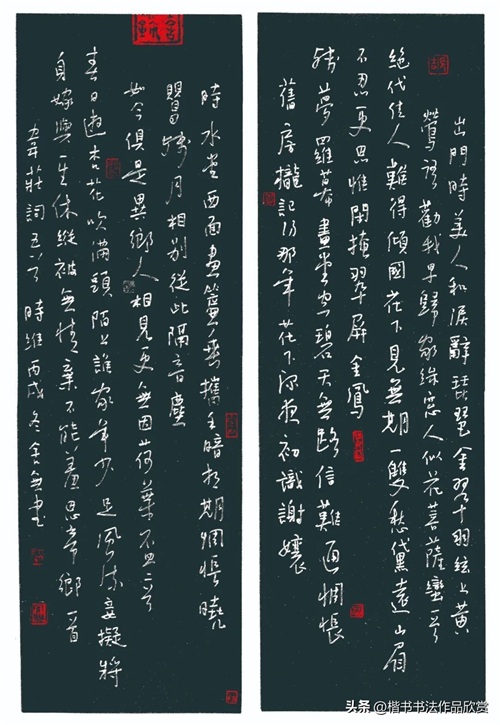 出門時美人和淚辭琵琶金翠羽絃上黃
鶯語勸我早歸家綠窗人似花菩薩蠻一首
絕代佳人難得傾國花下見無期一雙愁黛遠山眉
不忍更思惟閑掩翠屏金鳳
殘夢羅幕畫堂空碧天無路信難通惆悵
舊房櫳記得那年花下深夜初識謝孃
時水堂西面畫簾垂攜手暗相期惆悵曉
鶯殘月相別從此隔音塵
如今俱是異鄉人相見更無因荷葉杯二首
春日遊杏花吹滿頭陌上誰家年少足風流妾擬將
身嫁與一生休縱被無情棄不能羞思帝鄉一首
韋莊詞五首時維丙戌冬舍無書
头条 @楷书书法作品欣赏